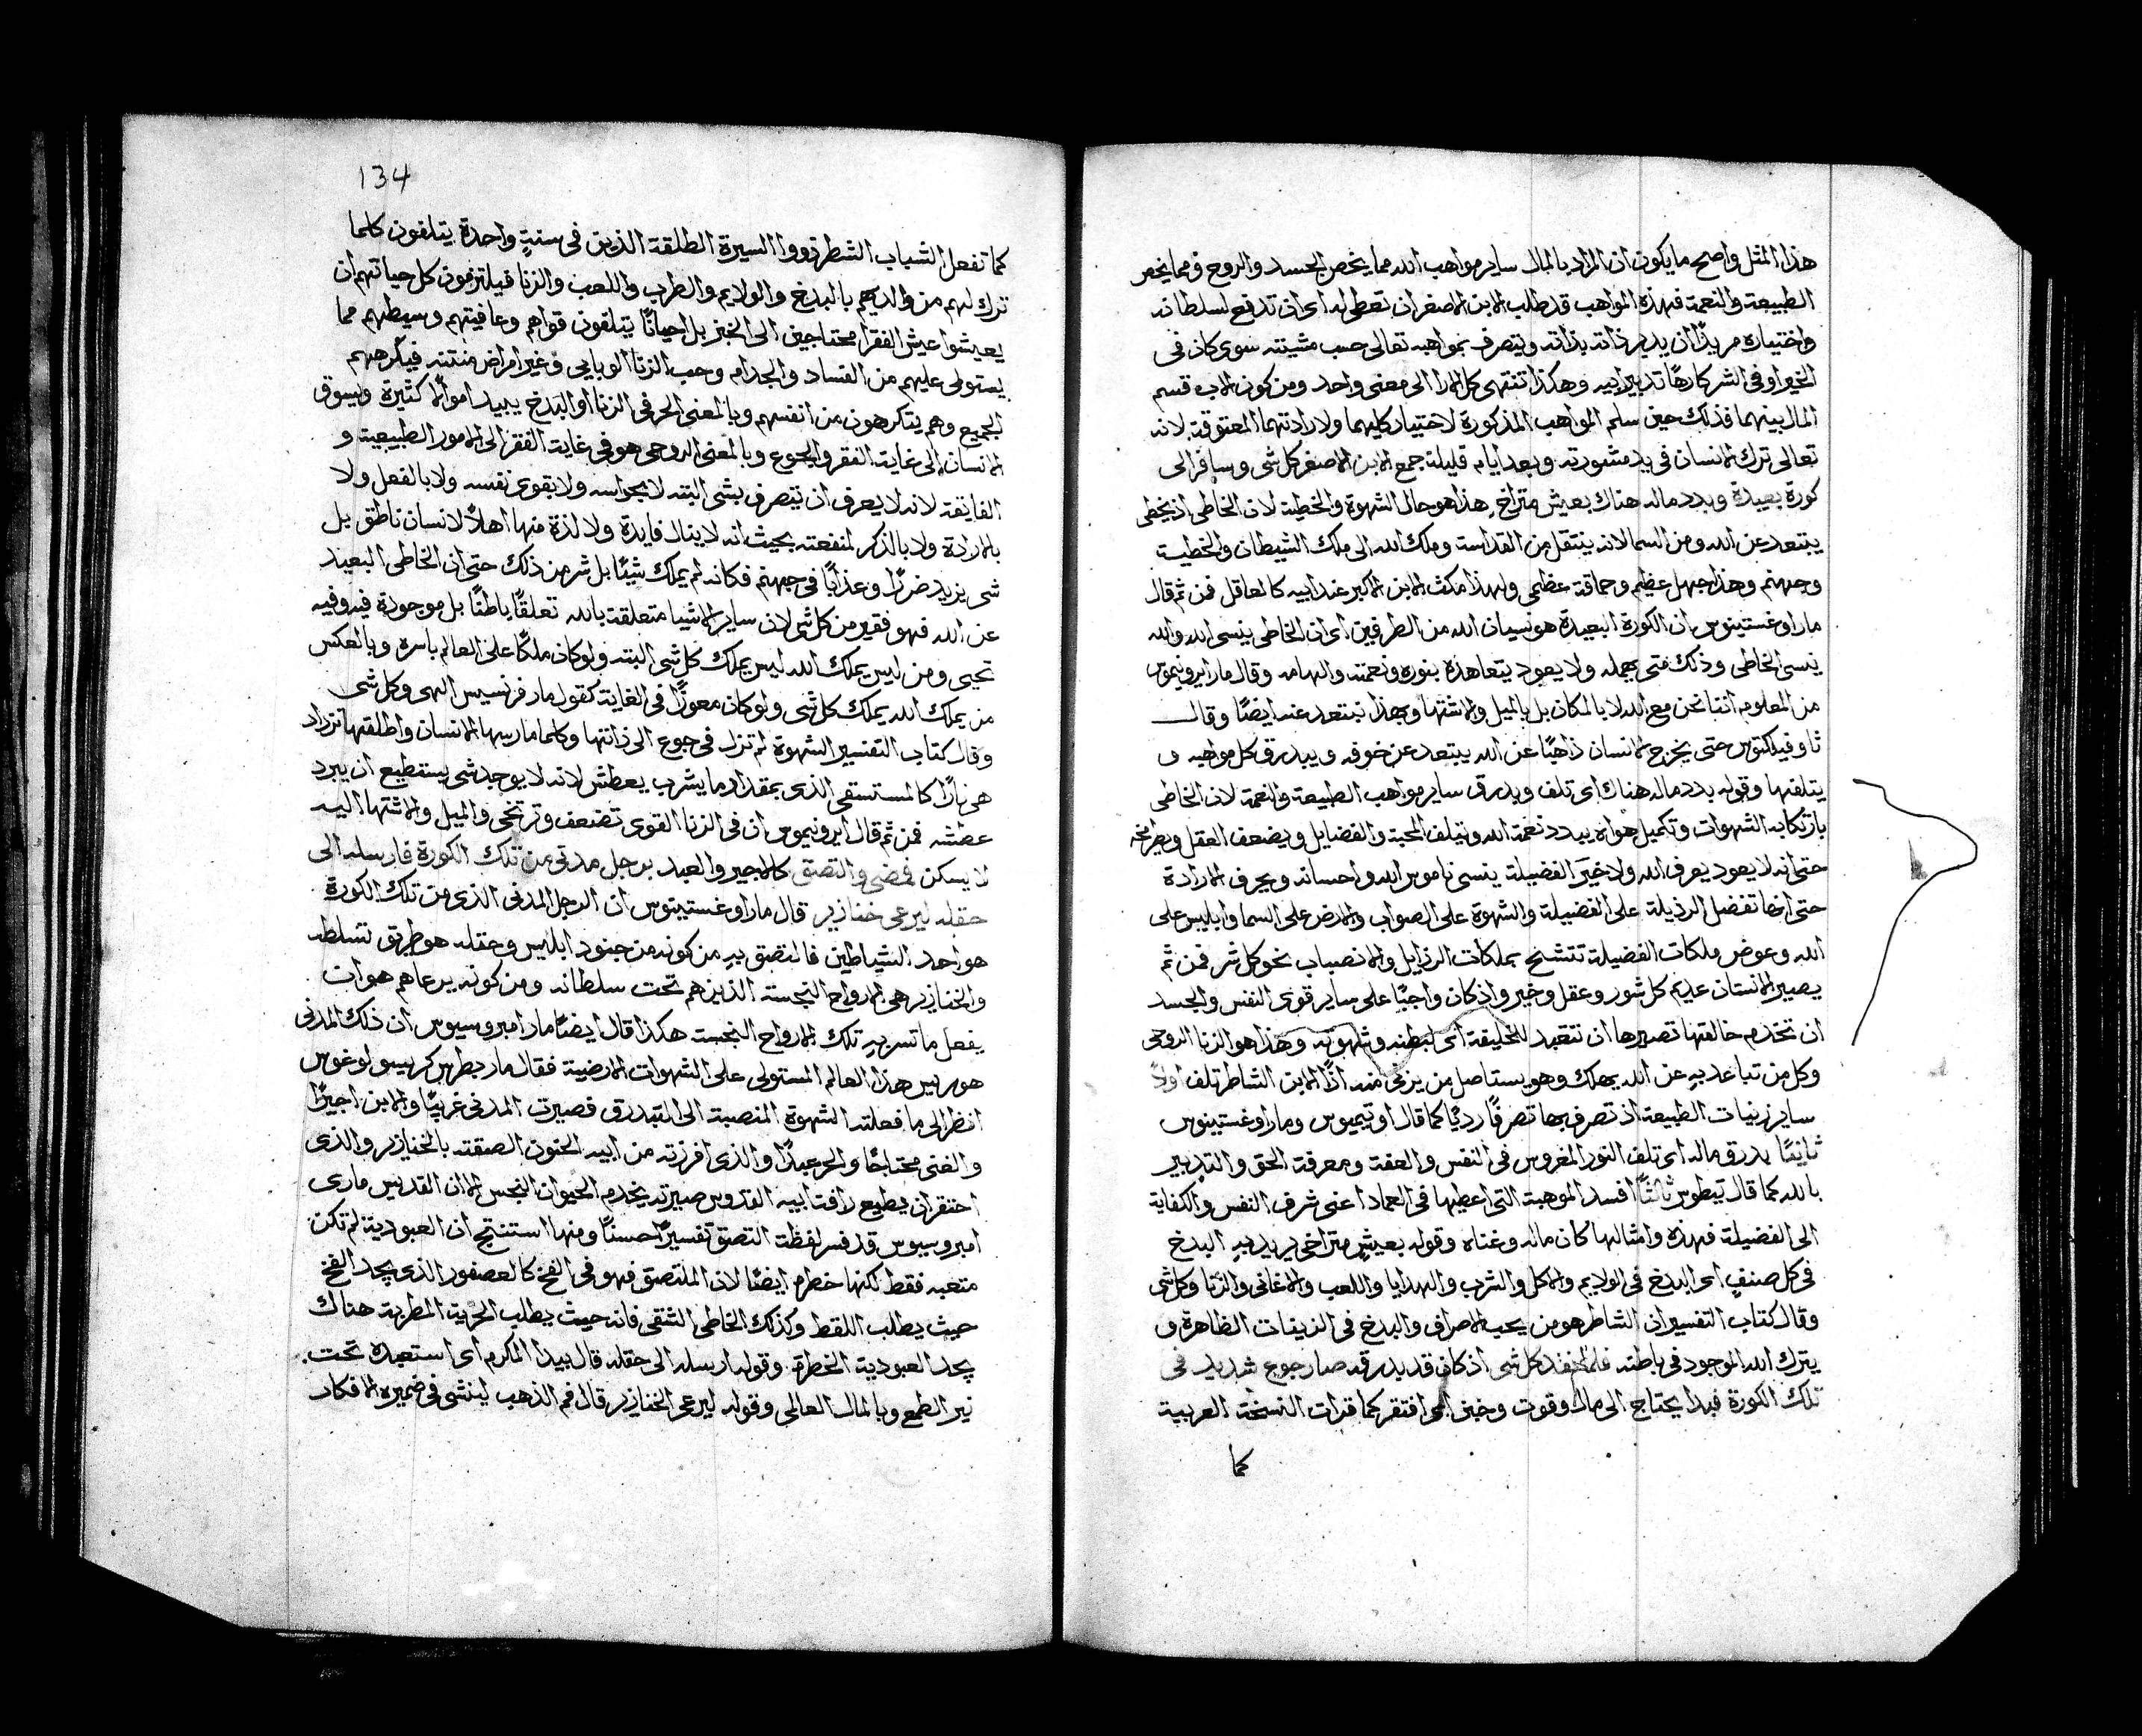 هذا المثل واصح ما يكون ان المراد بالمال ساير مواهب الله مما يخص الجسد والروح ومما يخص
الطبيعة والنعمة فهذه المواهب قد طلب الابن الاصغر ان تعطى له اى ان تدفع لسلطانه
واختياره مريدًا ان يدبر ذاته بذاته ويتصرف بمواهبه تعالى حسب مشيئته سوى كان فى
الخير او فى الشر كارهًا تدبير ابيه وهكذا تنتهى كل الارا الى معنى واحد ومن كون الاب قسم
المال بينهما فذلك حين سلم المواهب المذكورة لاختيار كليهما ولارادتهما المعتوقة لانه
تعالى ترك الانسان فى يد مشورته وبعد ايام قليلة جمع الابن الاصغر كل شى وسافر الى
كورة بعيدة وبدد ماله هناك بعيش متراخٍ هذا هو حال الشهوة والخطية لان الخاطى اذ يخطى
يبتعد عن الله ومن السما لانه ينتقل من القداسة وملك الله الى ملك الشيطان والخطية
وجهنم وهذا جهل عظيم وحماقة عظمى ولهذا مكث الابن الاكبر عند ابيه كالعاقل فمن ثم قال
مار اوغستينوس ان الكورة البعيدة هو نسيان الله من الطرفين اى ان الخاطى ينسى الله والله
ينسى الخاطى وذلك متى يهمله ولا يعود يتعاهده بنوره ونعمته والهامه وقال مار ايرونيموس
من المعلوم اننا نحن مع الله لا بالمكان بل بالميل والاشتها وبهذا نبتعد عنه ايضًا وقال
ثاوفيلكتوس حتى يخرج الانسان ذاهبًا عن الله يبتعد عن خوفه ويبدرق كل مواهبه و
يتلفها وقوله بدد ماله هناك اى تلف وبدرق ساير مواهب الطبيعة والنعمة لان الخاطى
بارتكابه الشهوات وتكميل هواه يبدد نعمة الله ويتلف المحبة والفضايل ويضعف العقل
حتى انه لا يعود يعرف الله ولا خير الفضيلة ينسى ناموس الله واحسانه ويحرف الارادة
حتى انها تفضل الرذيلة على الفضيلة والشهوة على الصواب والارض على السما وابليس على
الله وعوض ملكات الفضيلة تتشح بملكات الرذايل والانصباب نحو كل شر فمن ثم
يصير الانسان عديم كل شور وعقل وخير واذ كان واجبًا على ساير قوى النفس والجسد
ان تخدم خالقها تصيرها ان تتعبد للخليقة اى لبطنه وشهوته وهذا هو الزنا الروحى
وكل من تباعد به عن الله يهلك وهو يستاصل من يزنى عنه اذًا الابن الشاطر تلف اولاً
ساير زينات الطبيعة اذ تصرف بها تصرفًا رديًا كما قال اوتيميوس ومار اوغستينوس
ثانيًا بدرق ماله اى تلف النور المغروس فى النفس والعفة ومعرفة الحق والتدبير
بالله كما قال تيطوس ثالثًا افسد الموهبة التى اعطيها فى العماد اعنى شرف النفس والكفاية
الى الفضيلة فهذه وامثالها كان ماله وغناه وقوله بعيشٍ متراخى يريد به البدخ
فى كل صنفٍ اى البدخ فى الولايم والاكل والشرب والهدايا واللعب والاغانى والزنا وكل شى
وقال كتاب التفسير ان الشاطر هو من يحب الاصراف والبدخ فى الزينات الظاهرة و
يترك الله الموجود فى باطنه فلما نفد كل شى اذ كان قد بدرقه صار جوع شديد فى
تلك الكورة فبدا يحتاج الى مال وقوت وخبز اى افتقر كما قرات النسخة العربية
كما
134
كما تفعل الشباب الشطر ذووا السيرة الطلقة الذين فى سنةٍ واحدة يتلفون كلما
ترك لهم من والديهم بالبدخ والولايم والطرب واللعب والزنا فيلتزمون كل حياتهم ان
يعيشوا عيش الفقرا محتاجين الى الخبز بل احيانًا يتلفون قواهم وعافيتهم وسيطهم مما
يستولى عليهم من الفساد والجدام وحب الزنا الوبايى وغير امراض منتنه فيكرههم
الجميع وهم يتكرهون من انفسهم وبالمعنى الحرفى الزنا او البدخ يبيد اموالاً كثيرة ويسوق
الانسان الى غاية الفقر والجوع وبالمعنى الروحى هو فى غاية الفقر الى الامور الطبيعية و
الفايقة لانه لا يعرف ان يتصرف بشى البتة لا بحواسه ولا بقوى نفسه ولا بالفعل ولا
بالارادة ولا بالذكر لمنفعته بحيث انه لا ينال فايدة ولا لذة منها اهلاً لانسان ناطق بل
شى يزيد ضررًا وعذابًا فى جهنم فكانه لم يملك شيئًا بل شر من ذلك حتى ان الخاطى البعيد
عن الله فهو فقير من كل شى لان ساير الاشيا متعلقة بالله تعلقًا باطنًا بل موجودة فيه وفيه
تحيى ومن ليس يملك الله ليس يملك كل شى البتة ولو كان ملكًا على العالم باسره وبالعكس
من يملك الله يملك كل شى ولو كان معوزًا فى الغاية كقول مار فرنسيس الهى وكل شى
وقال كتاب التفسير الشهوة لم تزل فى جوع الى ذاتها وكلما مارسها الانسان واطلقها تزداد
هى نارًا كالمستسقى الذى بمقدار ما يشرب يعطش لانه لا يوجد شى يستطيع ان يبرد
عطشه فمن ثم قال ايرونيموس ان فى الزنا القوى تضعف وترتخى والميل والاشتها اليه
لا يسكن فمضى والتصق كالاجير والعبد برجل مدنى من تلك الكورة فارسله الى
حقله ليرعى خنازير قال مار اوغستينوس ان الرجل المدنى الذى من تلك الكورة
هو احد الشياطين فالتصق به من كونه من جنود ابليس وحقله هو طريق تسلطه
والخنازير هى الارواح النجسة الذين هم تحت سلطانه ومن كونه يرعاهم هو ان
يفعل ما تسر به تلك الارواح النجسة هكذا قال ايضًا مار امبروسيوس ان ذلك المدنى
هو ريس هذا العالم المستولى على الشهوات الارضية فقال مار بطرس كريسولوغوس
انظر الى ما فعلته الشهوة المنصبة الى التبدرق فصيرت المدنى غريبًا والابن اجيرًا
والغنى محتاجًا والحر عبدًا والذى افرزته من ابيه الحنون الصقته بالخنازير والذى
احتقر ان يطيع رافة ابيه القدوس صيرته يخدم الحيوان النجس الا ان القديس مارى
امبروسيوس قد فسر لفظة التصق تفسيرًا حسنًا ومنها استنتج ان العبودية لم تكن
متعبه فقط لكنها خطره ايضًا لان الملتصق فهو فى الفخ كالعصفور الذى يجد الفخ
حيث يطلب اللقط وكذلك الخاطى الشقى فانه حيث يطلب الحرية المطربة هناك
يجد العبودية الخطرة وقوله ارسله الى حقله قال بيدا المكرم اى استعبده تحت
نير الطمع وبالمال العالمى وقوله ليرعى الخنازير قال فم الذهب لينشى فى ضميره الافكار